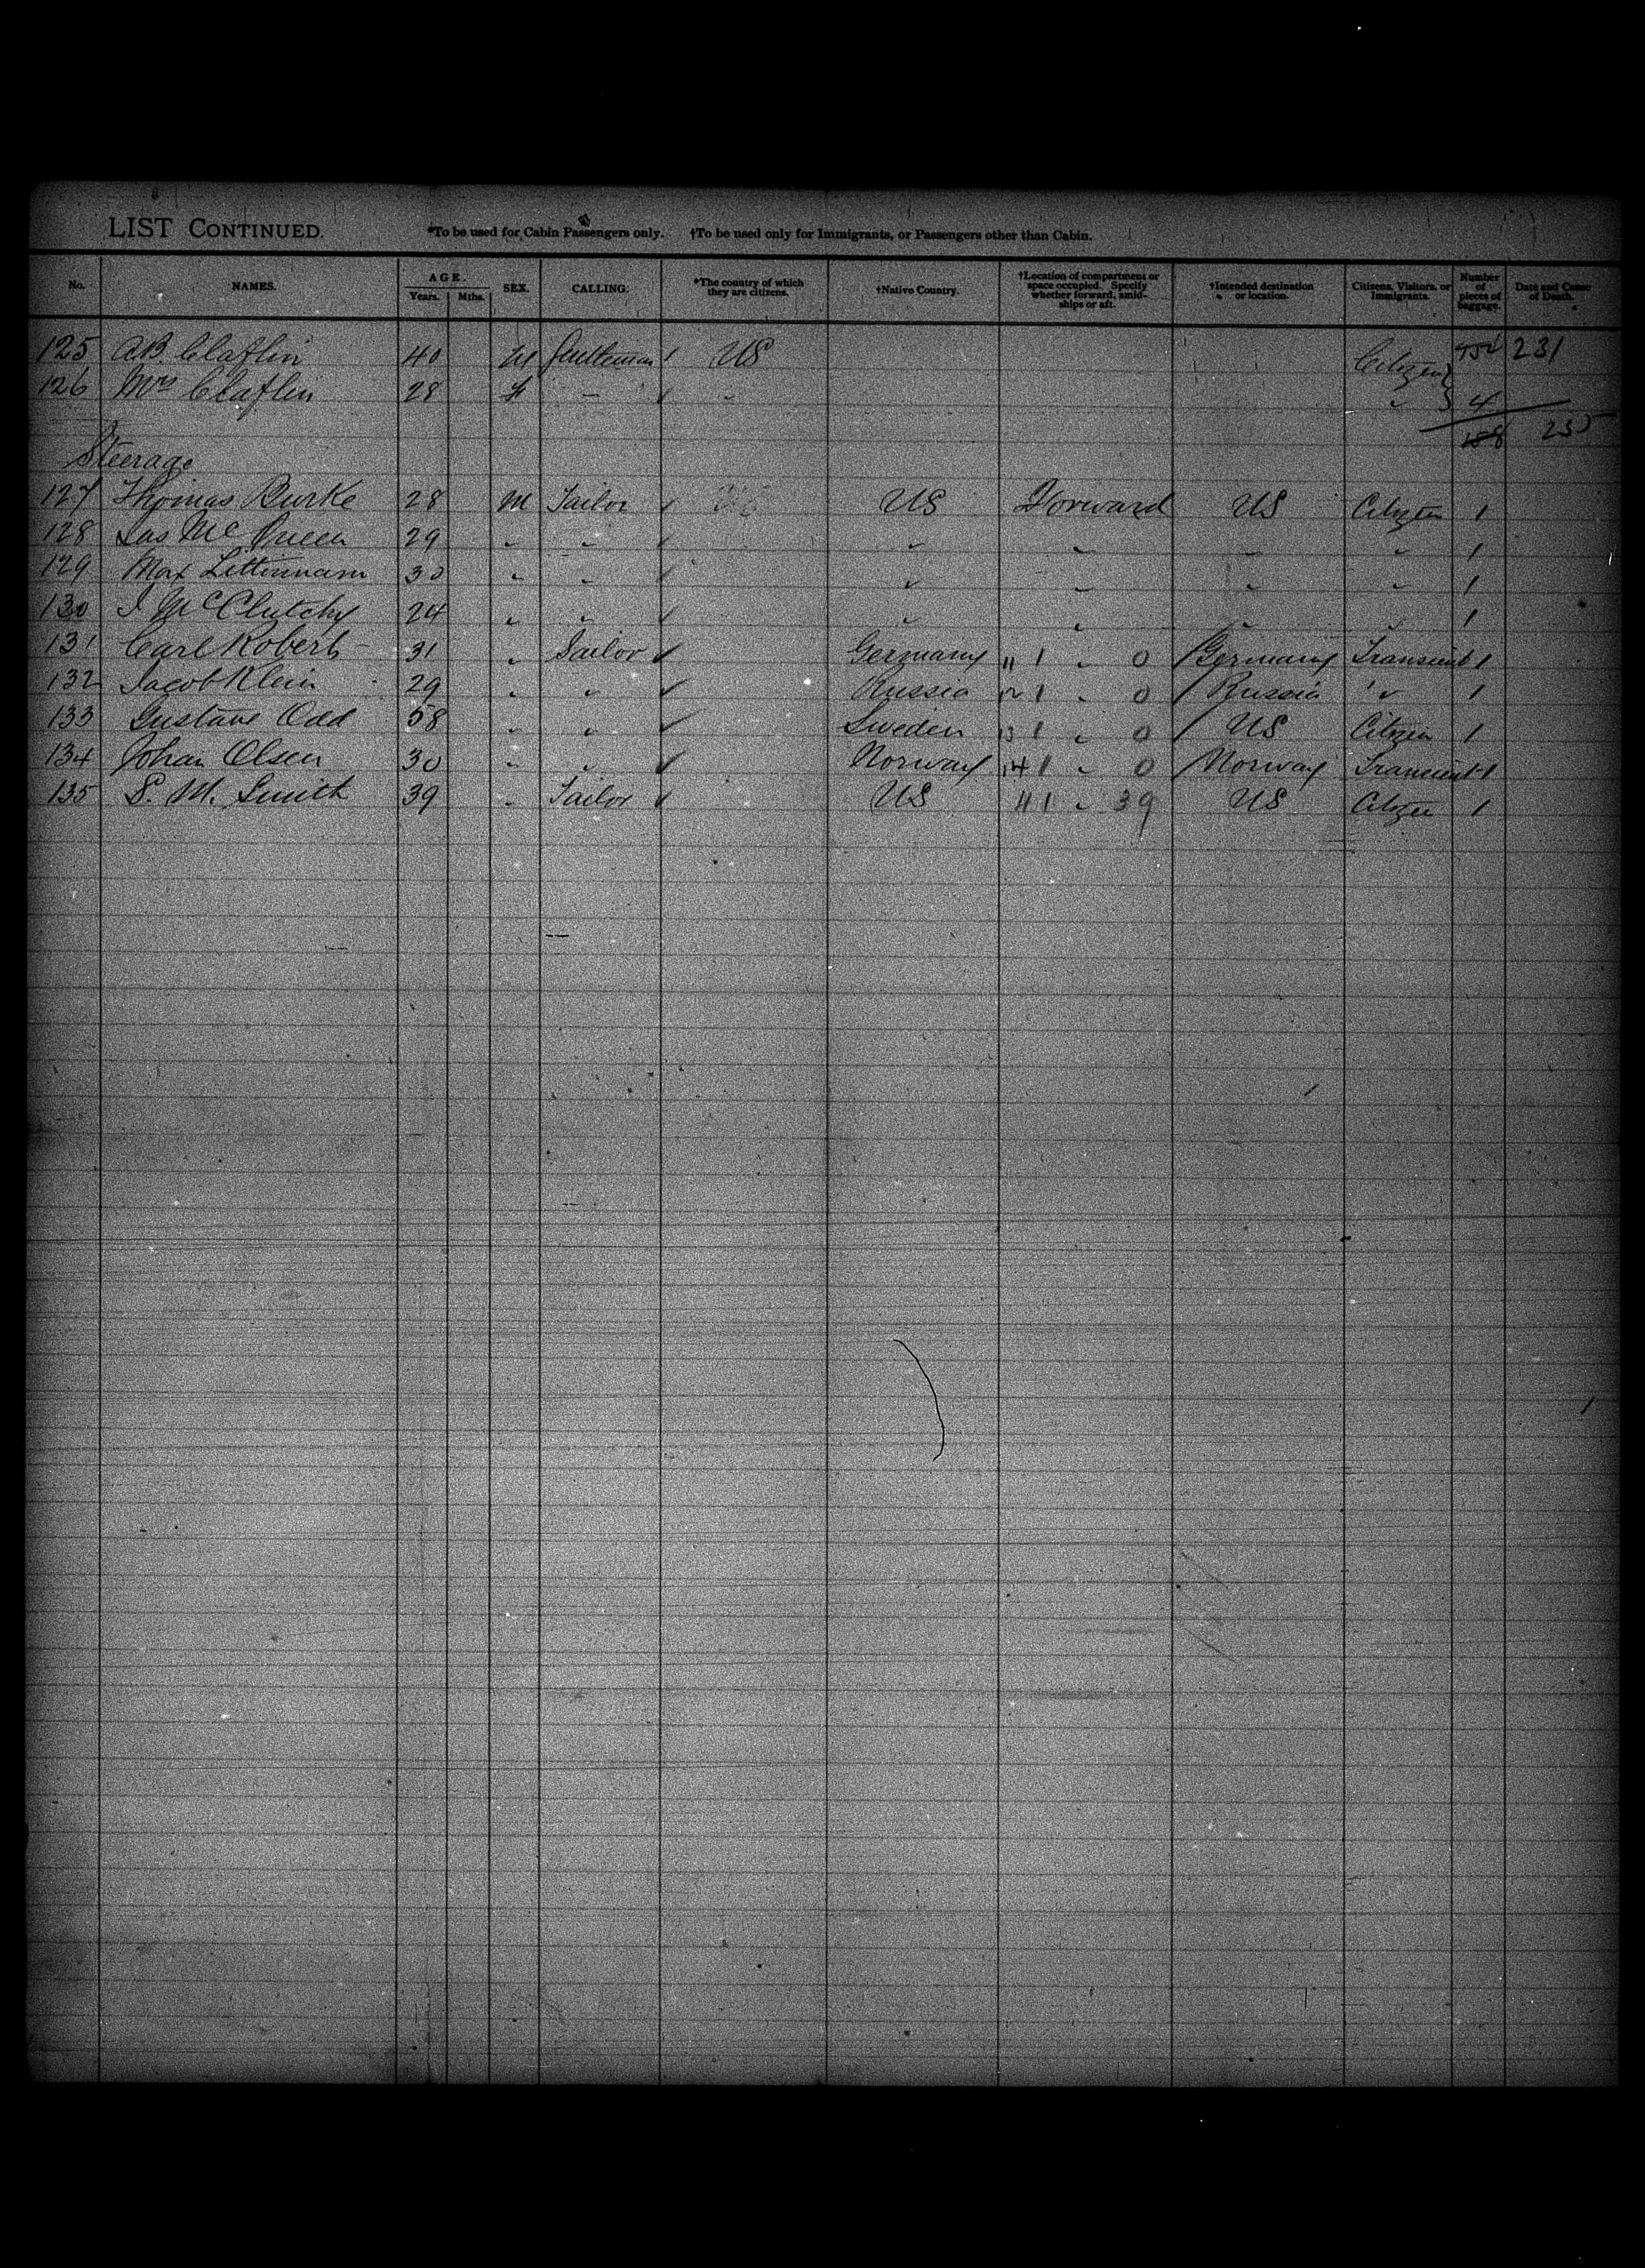 LIST CONTINUED. *To be used for Cabin Passengers only. †To be used only for Immigrants, or Passengers other than Cabin.
No. NAMES. AGE. Years. Mths. SEX. CALLING. *The country of which they are citizens. †Native Country. †Location of compartment or space occupied. Specify whether forward, amidships or aft. †Intended destination or location. Citizens, Visitors, or Immigrants. Number of pieces of baggage. Date and Cause of Death.
125 A.B. Claflin 40 M Gentleman US Citizen 231
126 Mrs Claflin 28 F - " " 4
158 235
Steerage
127 Thomas Burke 28 M Tailor US Forward US Citizen 1
128 Jas McQueen 29 " " " " " " 1
129 Max 30 " " " " " " 1
130 J McClutchy 24 " " " " " " 1
131 Carl Roberts 31 " Sailor Germany 11 1 " 0 Germany Transient 1
132 Jacob Klein 29 " " Russia 12 1 " 0 Russia " 1
133 Gustave Odd 58 " " Sweden 13 1 " 0 US Citizen 1
134 Johan Olsen 30 " " Norway 14 1 " 0 Norway Transient 1
135 S. M. Smith 39 " Tailor US 41 " 39 US Citizen 1